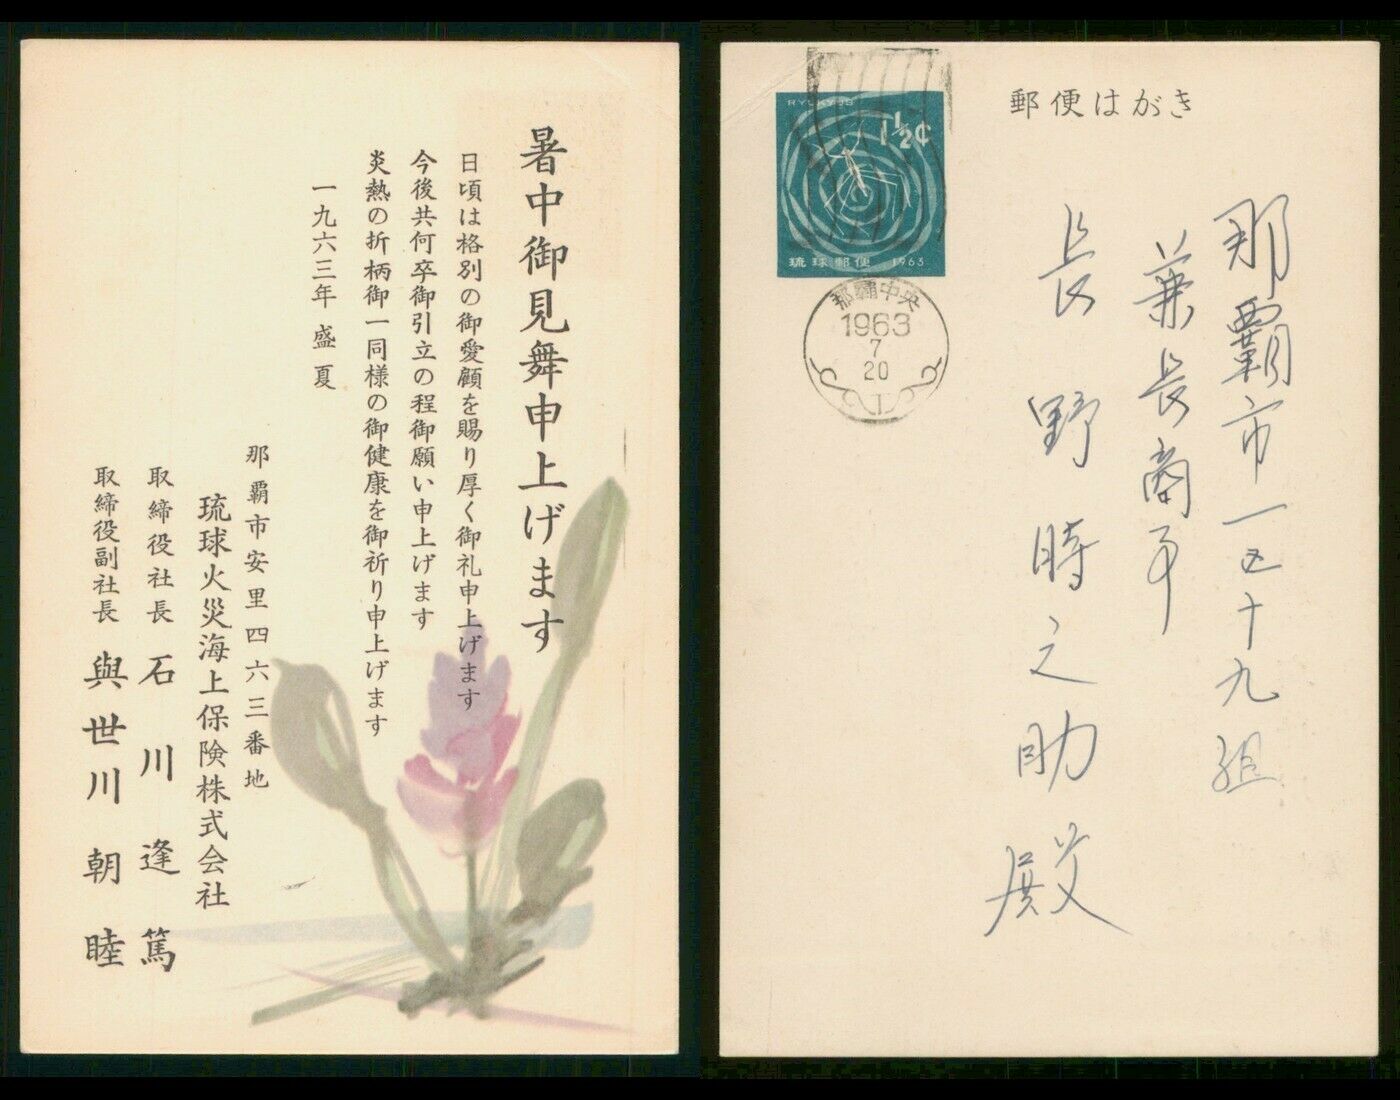 暑中御見舞申上げます
日頃は格別の御愛顧を賜り厚く御礼申上げます
今後共何卒御引立の程御願い申上げます
炎熱の折柄御一同様の御健康を御祈り申上げます
一九六三年 盛夏
那覇市安里四六三番地
琉球火災海上保険株式会社
取締役社長 石川逢篤
取締役副社長 與世川朝睦
郵便はがき
RYUKYUS
1½¢
琉球郵便 1963
那覇中央
1963
7
20
I
那覇市一区十九組
兼長商事
長野時之助殿